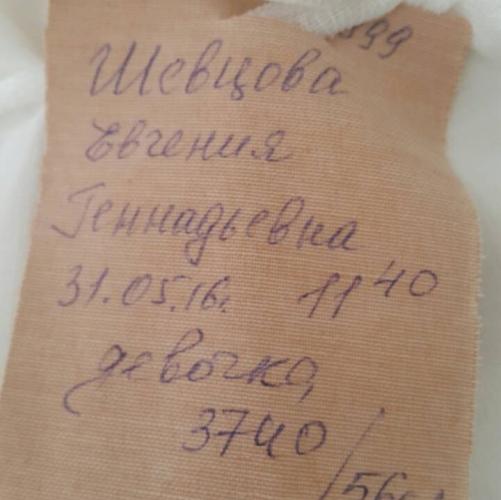 599
Шевцова
Евгения
Геннадьевна
31.05.16. 11 40
девочка
3740/
56